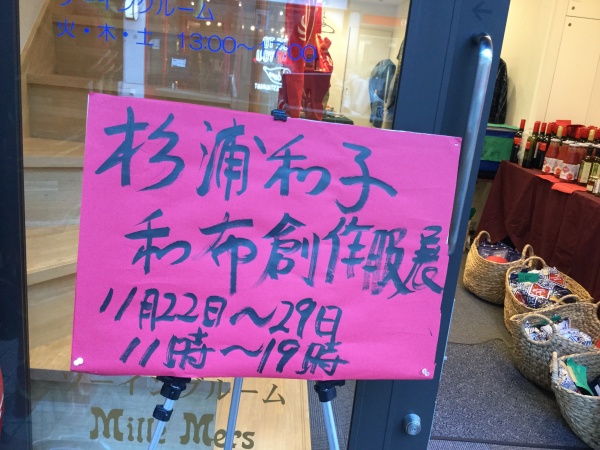 ソーイングルーム
火・木・土 13:00～17:00
杉浦和子
和布創作服展
11月22日～29日
11時～19時
ソーイングルーム
Mille Mers